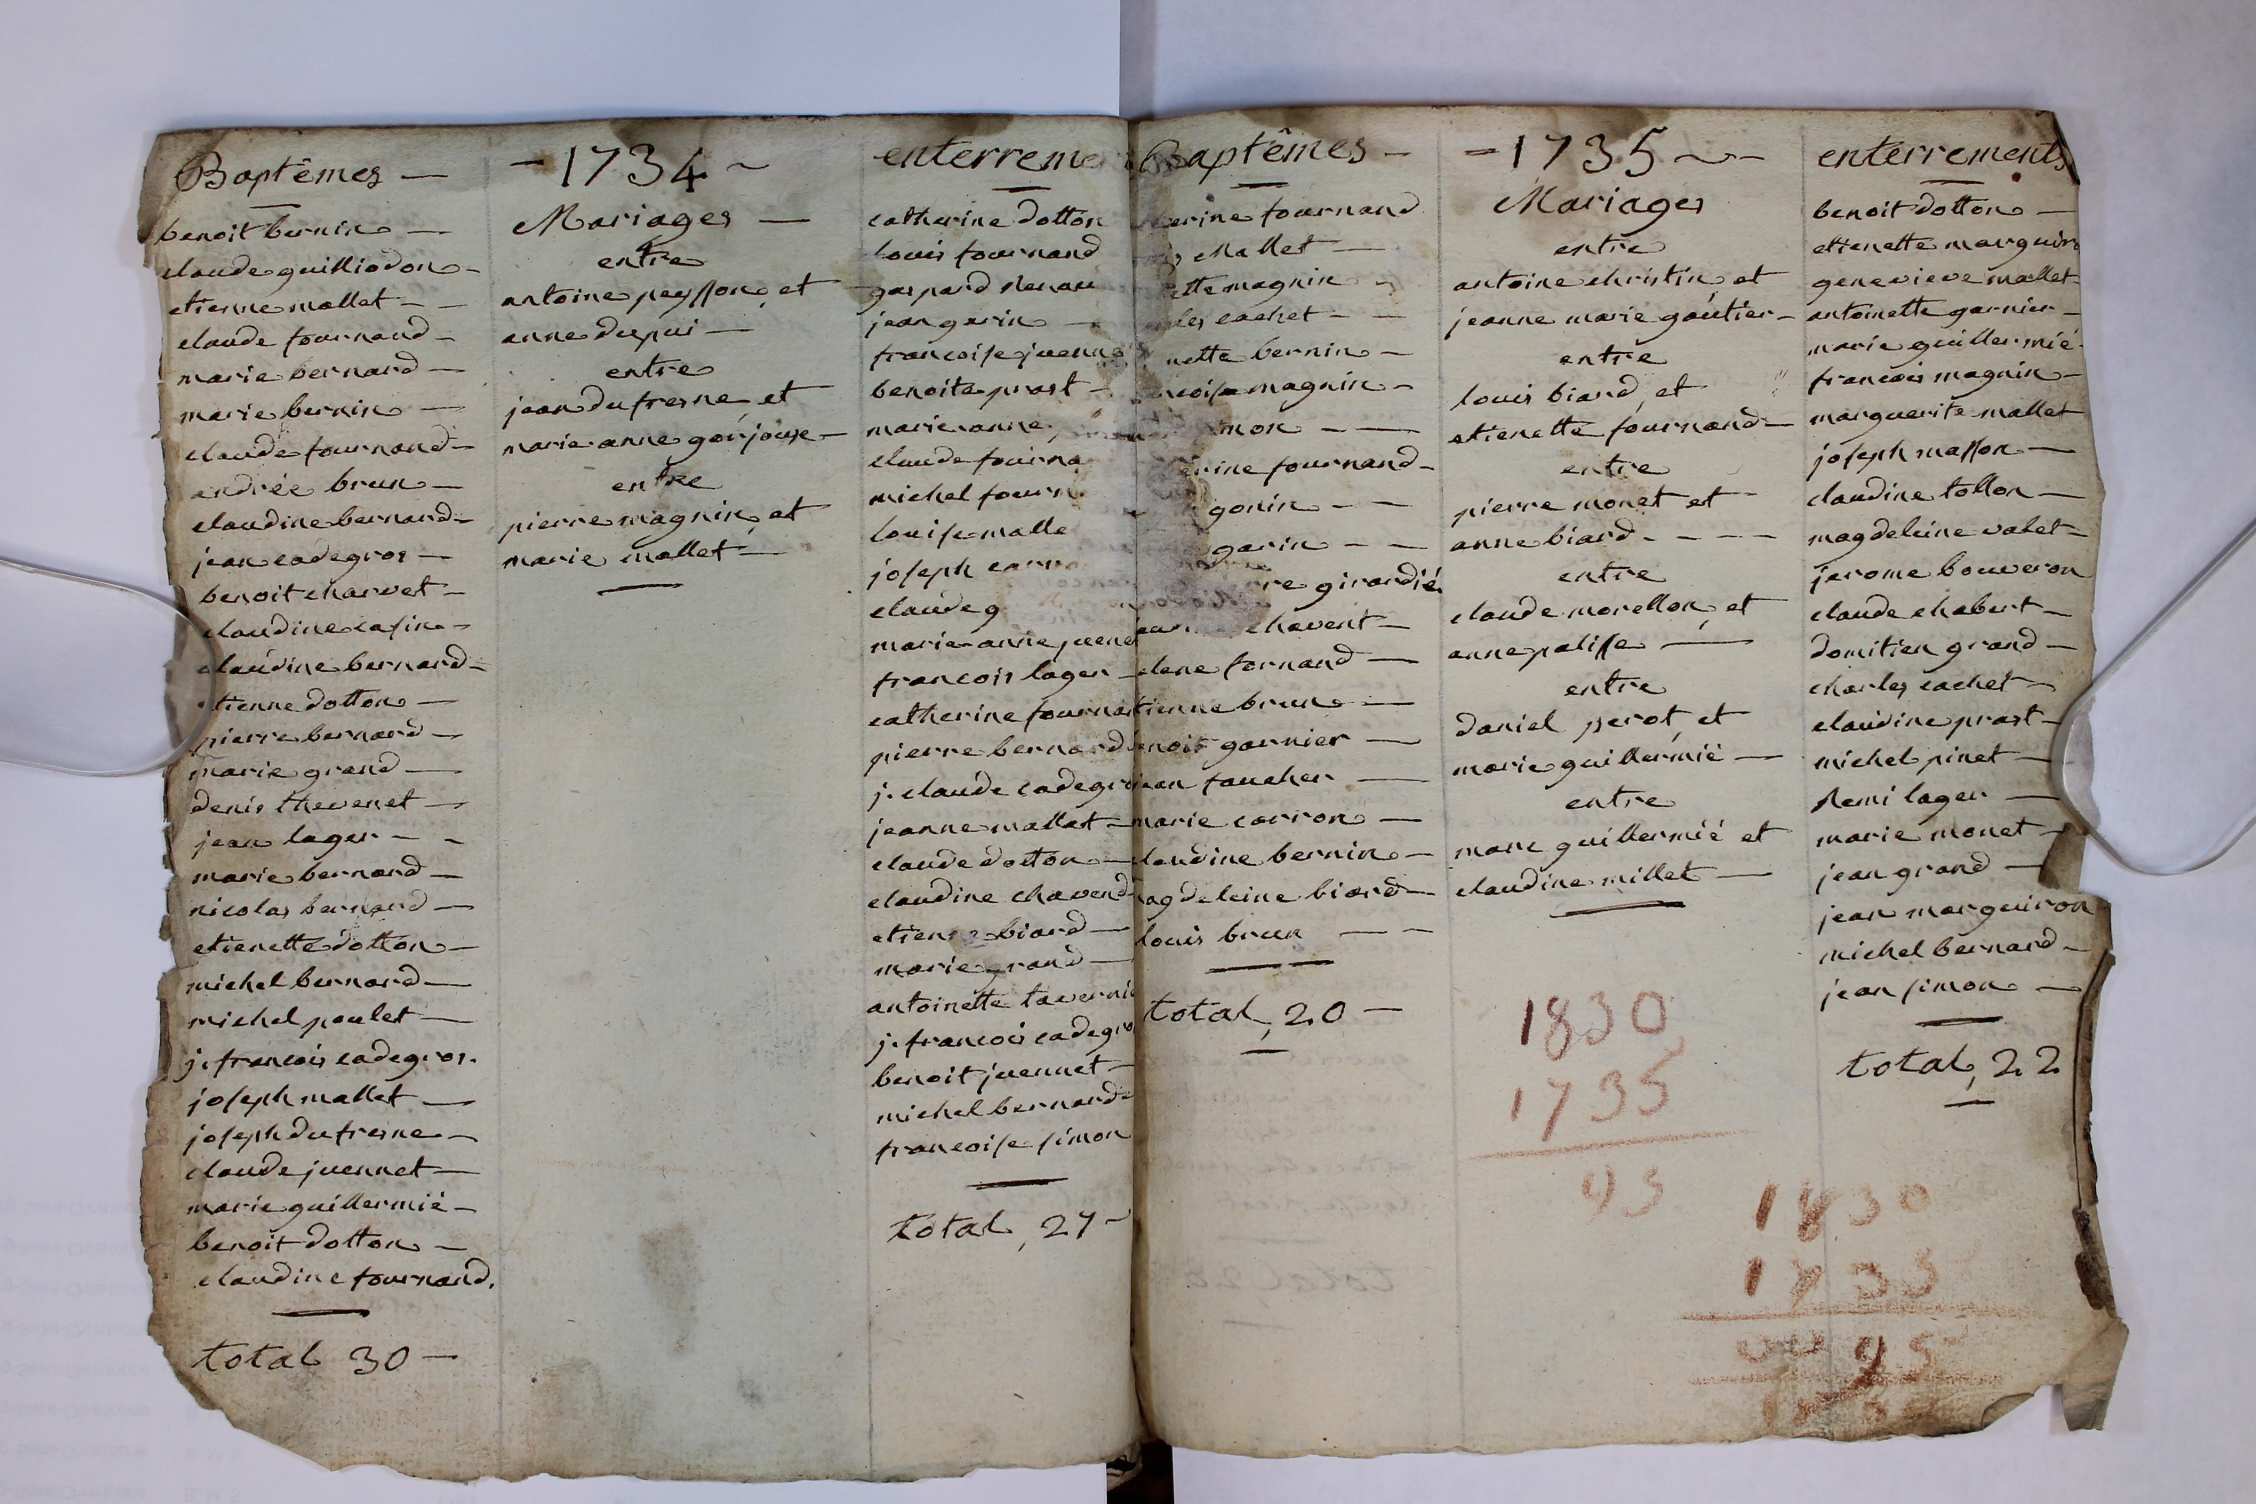 Baptêmes —
benoit bernin —
claude guilliodon -
etienne mallet - -
claude fournand -
marie bernard —
marie bernin —
claude fournand -
andrée brun —
claudine bernard -
jean cadegros —
benoit charvet -
claudine
claudine bernard -
etienne dotton —
pierre bernard —
marie grand —
denis thevenet —
jean lager - -
marie bernard —
nicolas bernard —
etienette dotton —
michel bernard —
michel poulet —
j. francois cadegros.
joseph mallet —
joseph dufresne —
claude juennet —
marie guillermié —
benoit dotton —
claudine fournand.
total 30 —
- 1734 ~
Mariages —
entre
antoine peysson, et
anne dupui —
entre
jean dufresne, et
marie anne gorjouse —
entre
pierre magnin, et
marie mallet —
enterreme
catherine dotton
louis fournand
gaspard Renau
jean garin —
francoise juenne
benoite prost -
marie anne
claude fourna
michel fourn
louise malle
joseph
claude g
marie anne juene
francois lager —
catherine fourna
pierre bernard
j. claude cadegro
jeanne mallet —
claude dotton —
claudine chavend
etienne biard —
marie grand —
antoinette taverni
j. francois cadegro
benoit juennet —
michel bernard -
francoise simon
total, 27 -
Baptêmes -
erine fournand
Mallet —
ette magnin -
les cachet - -
nette bernin —
ncoise magnin -
mon - —
erine fournand -
gonin - -
garin - -
re girardié
chavent —
elene fornand —
tienne brun —
enoit garnier —
ean faucher —
marie carron —
laudine bernin —
agdeleine biard —
louis brun — -
total, 20 —
- 1735 ~ -
Mariages
entre
antoine christin, et
jeanne marie gautier -
entre
louis biard, et
etienette fournand -
entre
pierre monet et
anne biard - - - -
entre
claude morellon, et
anne palisse —
entre
daniel perot, et
marie guillermié —
entre
marc guillermié et
claudine millet —
1830
1735
95
enterrements
benoit dotton —
etienette marguiro
genevieve mallet -
antoinette garnier -
marie guillermié -
francois magnin -
marguerite mallet
joseph masson —
claudine tollon —
magdeleine valet -
jerome bouveron
claude chabert -
domitien grand —
charles cachet -
claudine prost -
michel pinet —
Remi lager —
marie monet -
jean grand —
jean marguiron
michel bernard -
jean simon —
total, 22
1830
1735
95